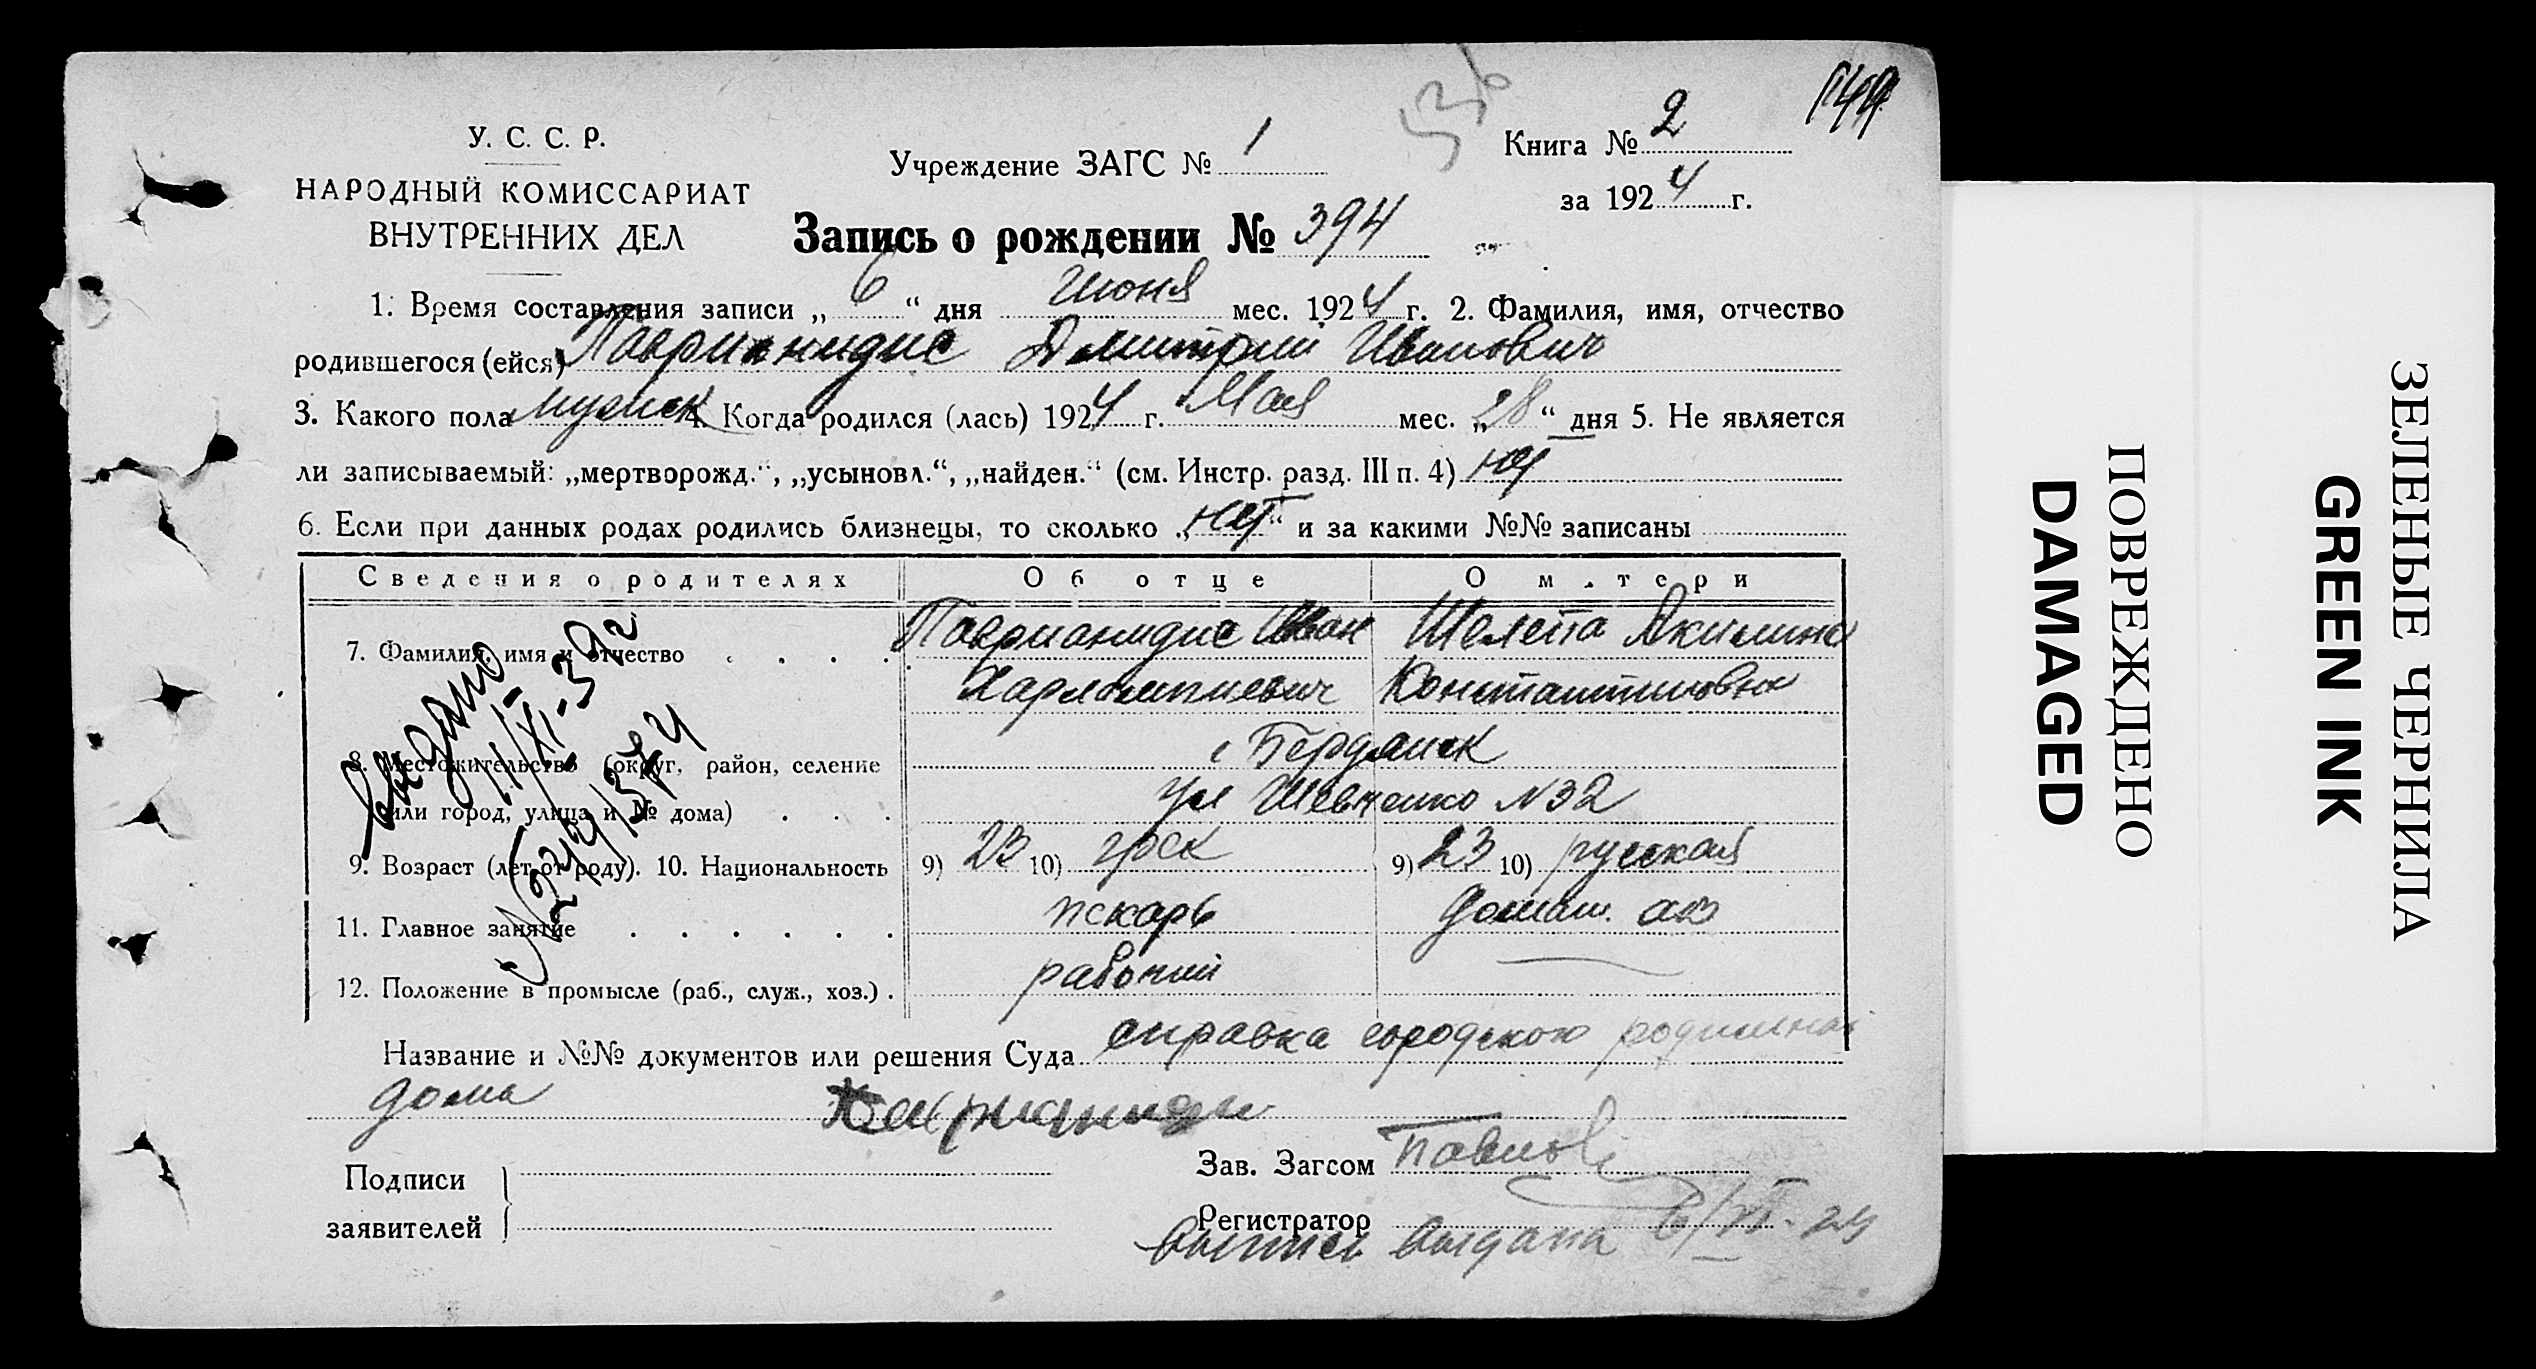 144
У. С. С. Р.
НАРОДНЫЙ КОМИССАРИАТ
ВНУТРЕННИХ ДЕЛ
Учреждение ЗАГС № 1
Книга № 2
за 1924 г.
Запись о рождении № 394
1. Время составления записи „6“ дня Июня мес. 1924 г. 2. Фамилия, имя, отчество
родившегося (ейся) Паврианидис Дмитрий Иванович
3. Какого пола мужск 4. Когда родился (лась) 1924 г. Мая мес. „28“ дня 5. Не является
ли записываемый: „мертворожд.“, „усыновл.“, „найден.“ (см. Инстр. разд. III п. 4) нет
6. Если при данных родах родились близнецы, то сколько „нет“ и за какими №№ записаны
Сведения о родителях Об отце О матери
7. Фамилия, имя и отчество Паврианидис Иван Шелепа Акилина
Харлампиевич Константиновна
8. Местожительство (округ, район, селение г Бердянск
или город, улица и № дома) ул Шевченко №32
9. Возраст (лет от роду). 10. Национальность 9) 23 10) грек 9) 23 10) русская
11. Главное занятие пекарь домаш. хоз
12. Положение в промысле (раб., служ., хоз.) рабочий
выдано
11/XI-39г
Название и №№ документов или решения Суда справка городского родильного
дома
Зав. Загсом Павлов
Подписи
заявителей
Регистратор
выпись выдана 6/VI-24
ЗЕЛЕНЫЕ ЧЕРНИЛА
GREEN INK
ПОВРЕЖДЕНО
DAMAGED